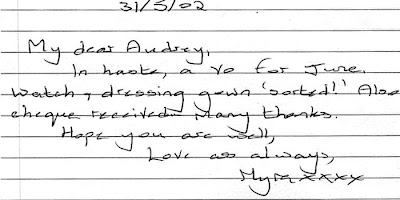 31/5/02
My dear Audrey,
In haste, a VO for June.
Watch & dressing gown 'sorted!' Also
cheque received. Many thanks.
Hope you are well,
Love as always,
Myra xxxx